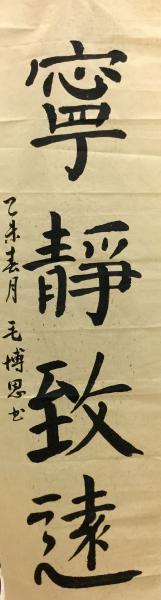 寧靜致遠
乙未春月 毛博恩书